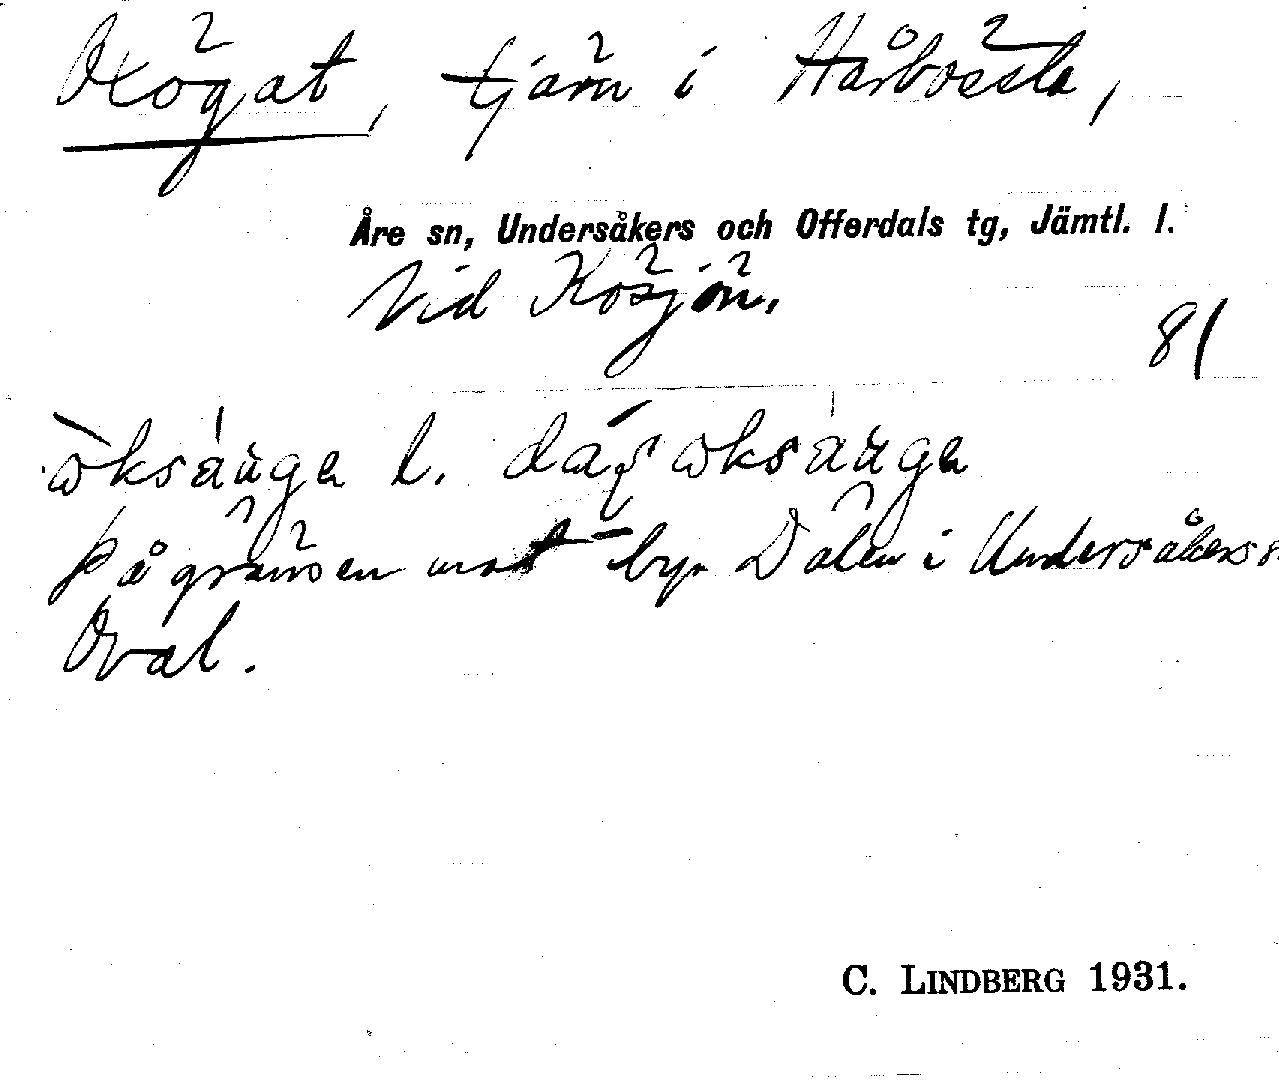 Oxögat, tjärn i Hårbörsta,
Åre sn, Undersåkers och Offerdals tg, Jämtl. l.
Vid Kösjön.
81
òksáuga l. dáʃ òksáuga
på gränsen mot byn Dalen i Undersåkers s
Oval.
C. LINDBERG 1931.